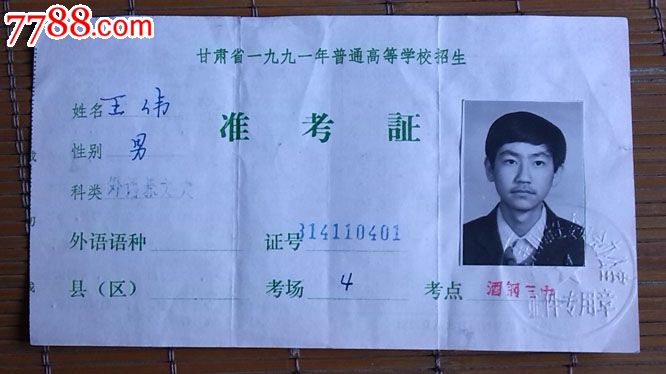 7788.com
甘肃省一九九一年普通高等学校招生
准考証
姓名 王伟
性别 男
科类 外语兼文史
外语语种 证号 314110401
县（区） 考场 4 考点 酒钢三中
证件专用章